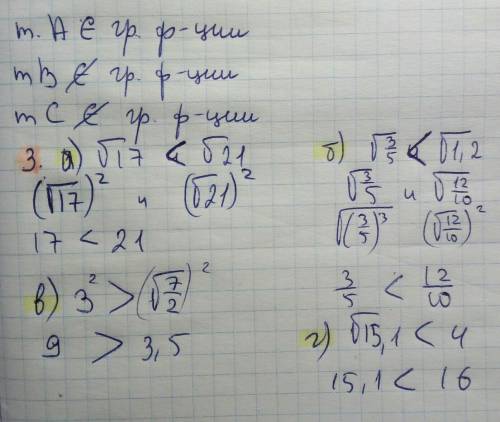 т. A ∈ гр. ф-ции
т B ∉ гр. ф-ции
т C ∉ гр. ф-ции
3. а) √17 < √21
(√17)² и (√21)²
17 < 21
б) √3/5 < √1,2
√3/5 и √12/10
√(3/5)³ (√12/10)²
3/5 < 12/10
в) 3² > (√7/2)²
9 > 3,5
г) √15,1 < 4
15,1 < 16